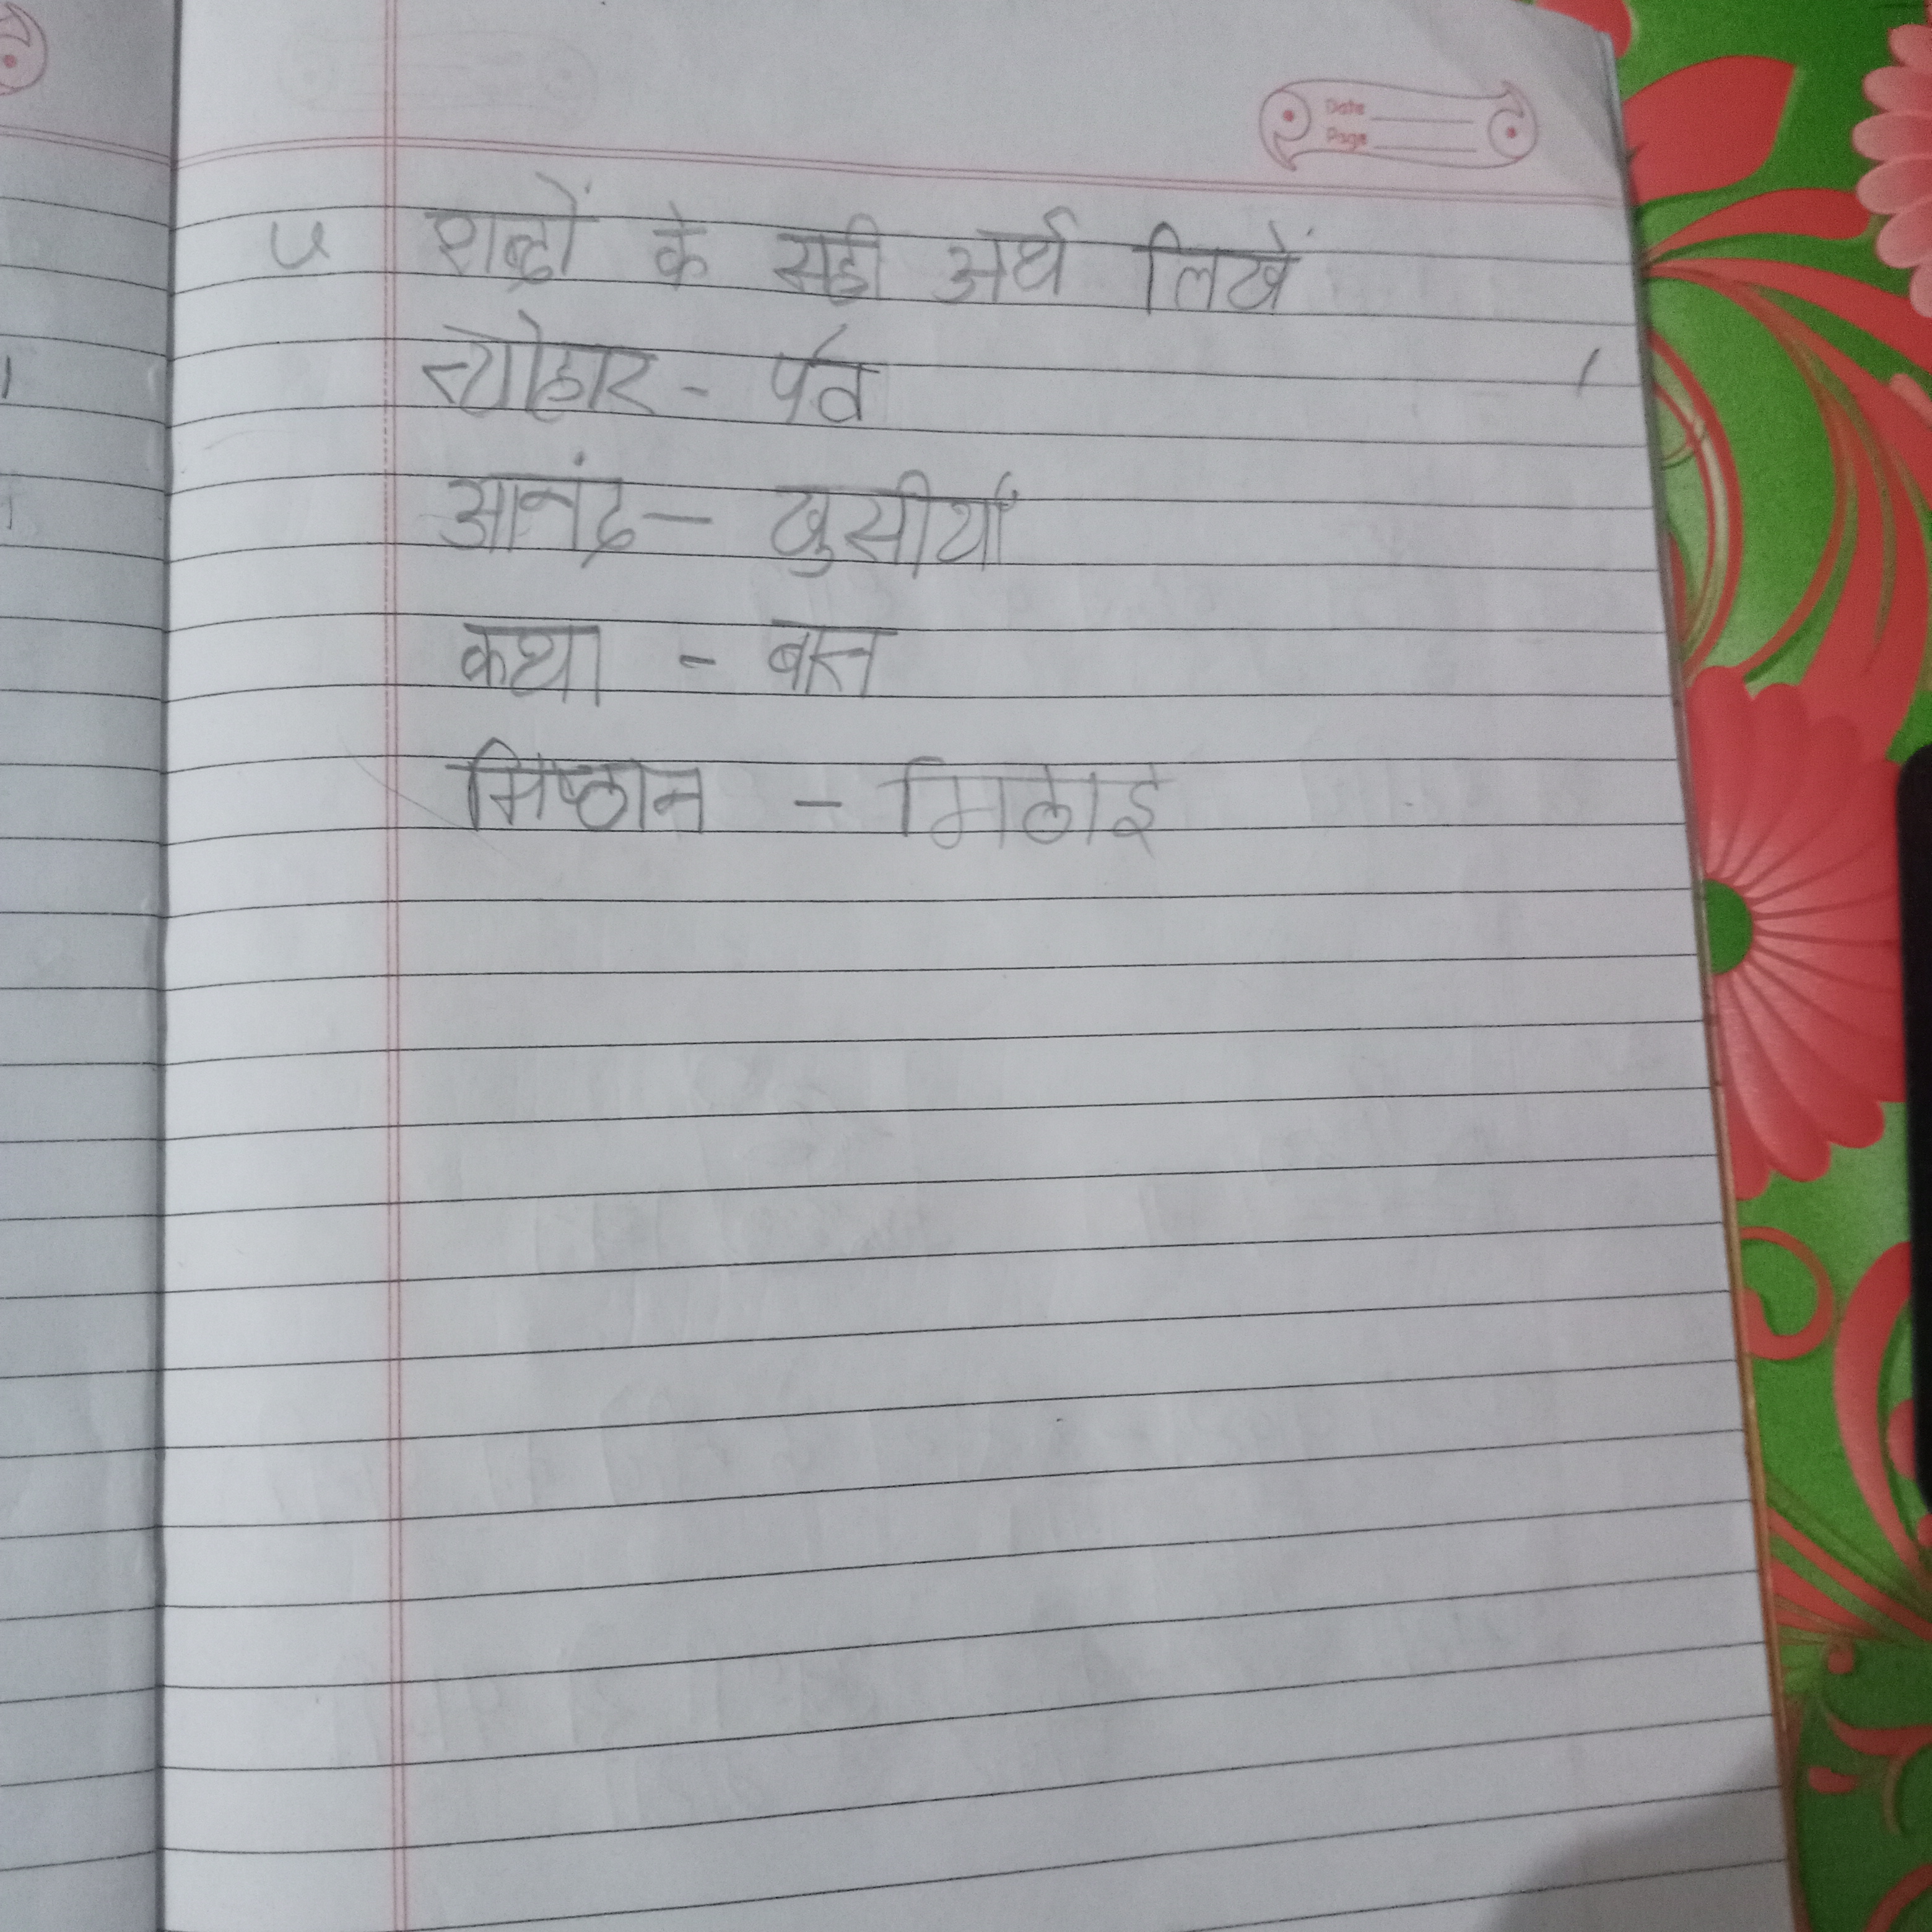 Date
Page
५ शब्दों के सही अर्थ लिखें
त्योहार - र्पव
आनंद - खुसीयाँ
कथा - बात
मिष्ठान - मिठाइ